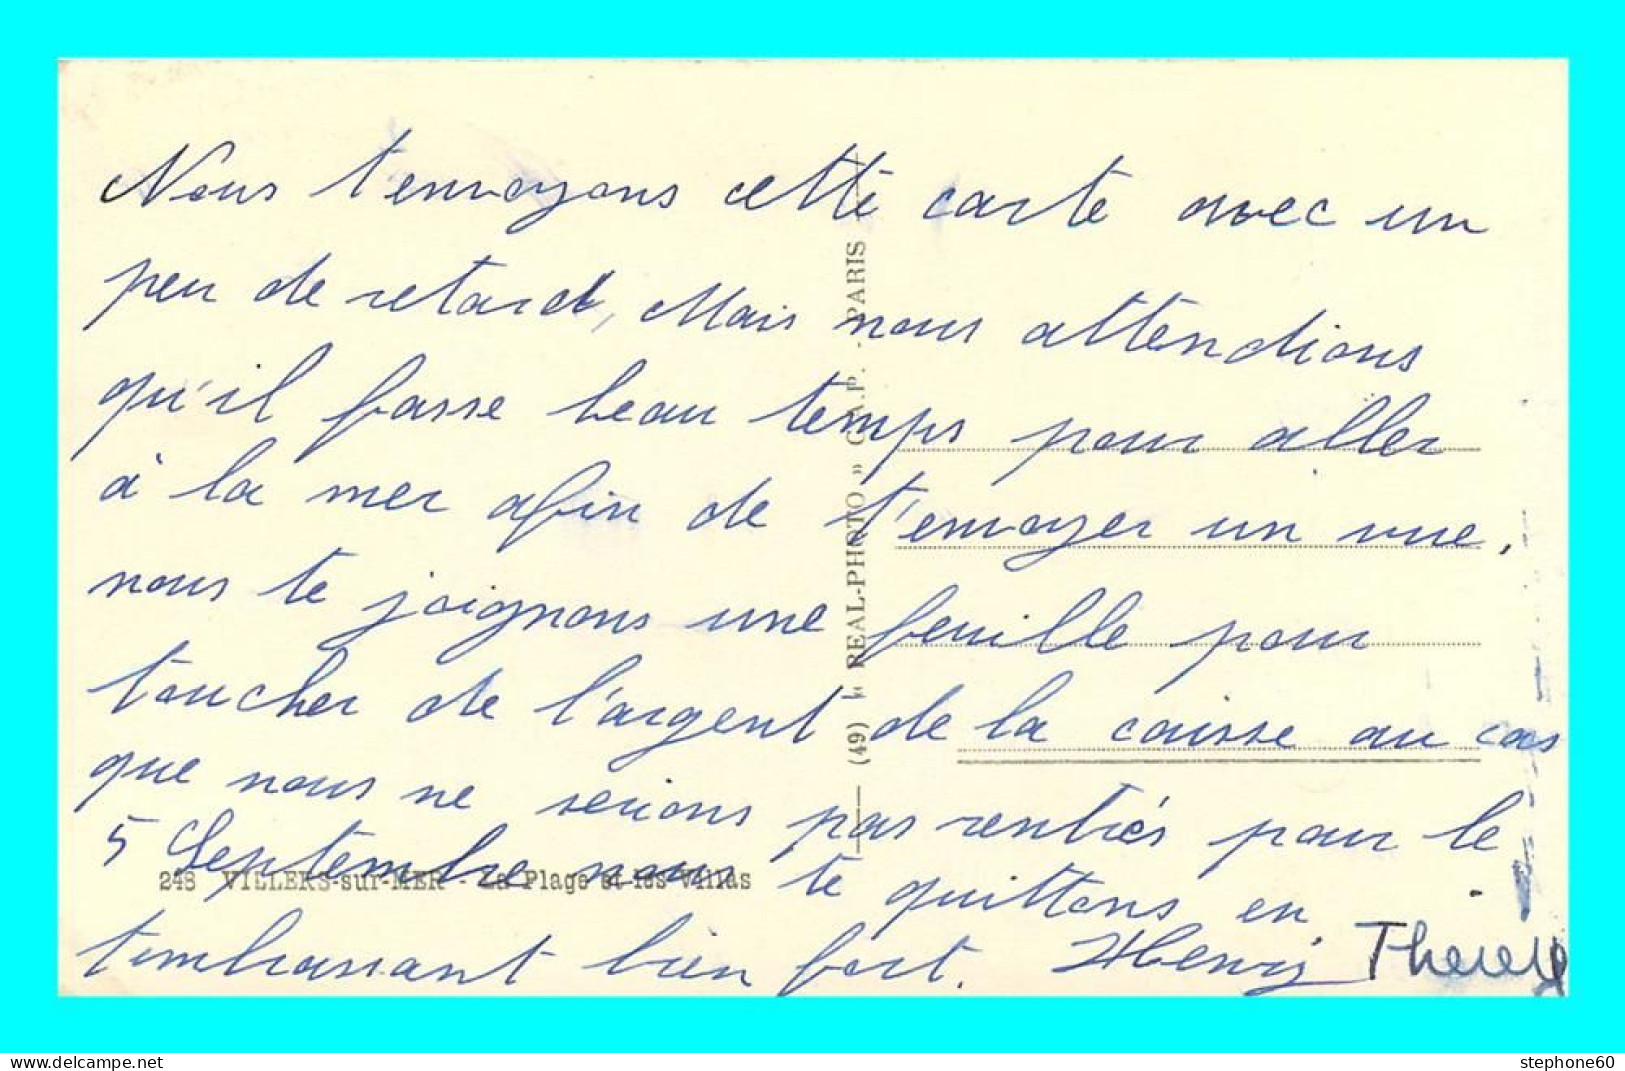 Nous t'envoyons cette carte avec un
peu de retard, Mais nous attendions
qu'il fasse beau temps pour aller
à la mer afin de t'envoyer un vue,
nous te joignons une feuille pour
toucher de l'argent de la caisse au cas
que nous ne serions pas rentrés pour le
5 Septembre nous te quittons en
t'embrassant bien fort. Henri
248 VILLERS-sur-MER - La Plage et les Villas
(49) « REAL-PHOTO » C.A.P. - PARIS
stephone60